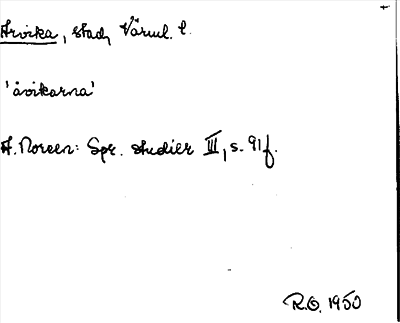 Arvika, stad, Värml. l.
'åvikarna'
A. Noreen: Spr. studier III, s. 91 f.
R.O. 1950